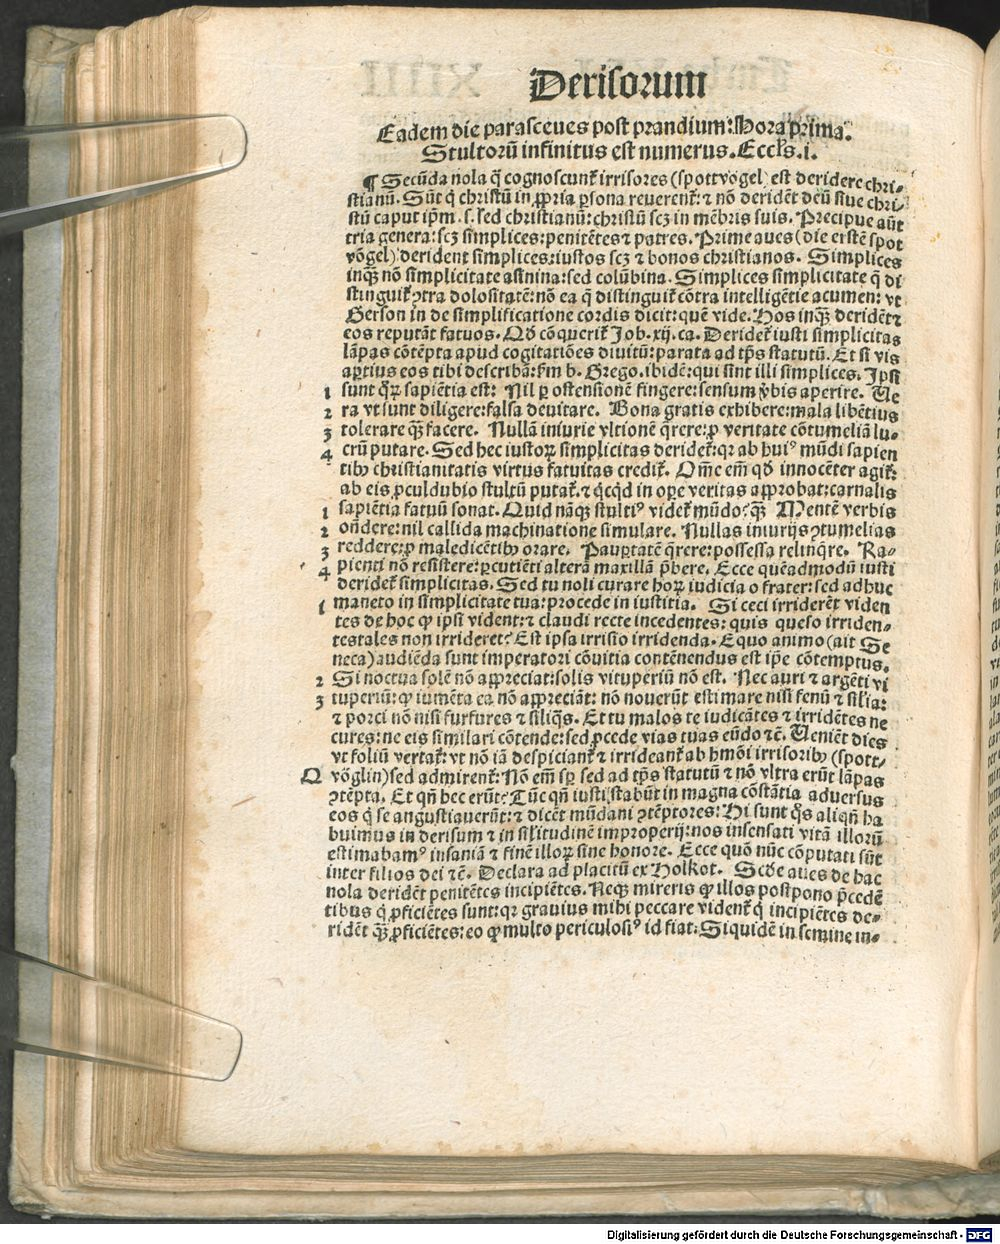 Derisorum
Eadem die parasceues post prandium: Hora prima.
Stultorū infinitus est numerus. Eccls. i.
¶ Secūda nola q̄ cognoscunt̄ irrisores (spottvögel) est deridere chri-
stianū. Sūt q̇ christū in ꝓpria ꝑsona reuerent̄: ⁊ nō deridēt deū siue chri-
stū caput ip̄m. s. sed christianū: christū scꝫ in mēbris suis. Precipue aūt
tria genera: scꝫ simplices: penitētes ⁊ patres. Prime aues (die erstē spot
vögel) derident simplices: iustos scꝫ ⁊ bonos christianos. Simplices
inqꝫ nō simplicitate asinina: sed colūbina. Simplices simplicitate q̄ di
stinguit̄ ꝯtra dolositatē: nō ea q̄ distinguit̄ cōtra intelligētie acumen: vt
Gerson in de simplificatione cordis dicit: quē vide. Hos inqꝫ deridēt ⁊
eos reputāt fatuos. Qḋ cōquerit̄ Job. xij. ca. Deridet̄ iusti simplicitas
lāpas cōtēpta apud cogitatiōes diuitū: parata ad tp̄s statutū. Et si vis
aꝑtius eos tibi describā: ẜm b. Grego. ibidē: qui sint illi simplices. Ipsi
1 sunt qōꝝ sapiētia est: Nil ꝑ ostensionē fingere: sensum v̄bis aperire. Ve
2 ra vt sunt diligere: falsa deuitare. Bona gratis exhibere: mala libētius
3 tolerare qꝫ̄ facere. Nullā iniurie vltionē q̄rere: ꝓ veritate cōtumeliā lu-
4 crū putare. Sed hec iustoꝝ simplicitas deridet̄: qꝛ ab huiꝰ mūdi sapien
tibꝫ christianitatis virtus fatuitas credit̄. Om̄e em̄ qḋ innocēter agit̄:
ab eis ꝓculdubio stultū putat̄. ⁊ q̇cq̇d in oꝑe veritas approbat: carnalis
1 sapiētia fatuū sonat. Quid nāqꝫ stultiꝰ videt̄ mūdo? qꝫ̄ Mentē verbis
2 oñdere: nil callida machinatione simulare. Nullas iniurijs ꝯtumelias
3 reddere: ꝓ maledicētibꝫ orare. Pauꝑtatē q̄rere: possessa relinq̄re. Ra-
4 pienti nō resistere: ꝑcutiēti alterā maxillā p̄bere. Ecce quēadmodū iusti
deridet̄ simplicitas. Sed tu noli curare hoꝝ iudicia o frater: sed adhuc
1 maneto in simplicitate tua: procede in iustitia. Si ceci irriderēt viden
tes de hoc ꝙ ipsi vident: ⁊ claudi recte incedentes: quis queso irriden-
tes tales non irrideret? Est ipsa irrisio irridenda. Equo animo (ait Se
neca) audiēda sunt imperatori cōuitia contēnendus est ip̄e cōtemptus.
2 Si noctua solē nō appreciat: solis vituperiū nō est. Nec auri ⁊ argēti vi
3 tuperiū: ꝙ iumēta ea nō appreciāt: nō nouerūt estimare nisi fenū ⁊ silia:
⁊ porci nō nisi furfures ⁊ siliq̄s. Et tu malos te iudicātes ⁊ irridētes ne
cures: ne eis similari cōtende: sed ꝓcede vias tuas eūdo ⁊c̄. Veniēt dies
vt foliū vertat̄: vt nō iā despiciant̄ ⁊ irrideant̄ ab hm̄oi irrisoribꝫ (spott-
Q vöglin) sed admirent̄: Nō em̄ sꝑ sed ad tp̄s statutū ⁊ nō vltra erūt lāpas
ꝯtēpta. Et qn̄ hec erūt? Tūc qn̄ iusti stabūt in magna cōstātia aduersus
eos q̇ se angustiauerūt: ⁊ dicēt mūdani ꝯtēptores: Hi sunt q̄s aliqn̄ ha
buimus in derisum ⁊ in sil'itudinē improperij: nos insensati vitā illorū
estimabamꝰ insaniā ⁊ finē illoꝝ sine honore. Ecce quō nūc cōputati sūt
inter filios dei ⁊c̄. Declara ad placitū ex Holkot. Scḋe aues de hac
nola deridēt penitētes incipiētes. Neqꝫ mireris ꝙ illos postpono p̄cedē
tibus q̇ ꝓficiētes sunt: qꝛ grauius mihi peccare vident̄ q̇ incipiētes de-
ridēt qꝫ̄ ꝓficiētes: eo ꝙ multo periculosiꝰ id fiat: Siquidē in semine in-
Digitalisierung gefördert durch die Deutsche Forschungsgemeinschaft - DFG